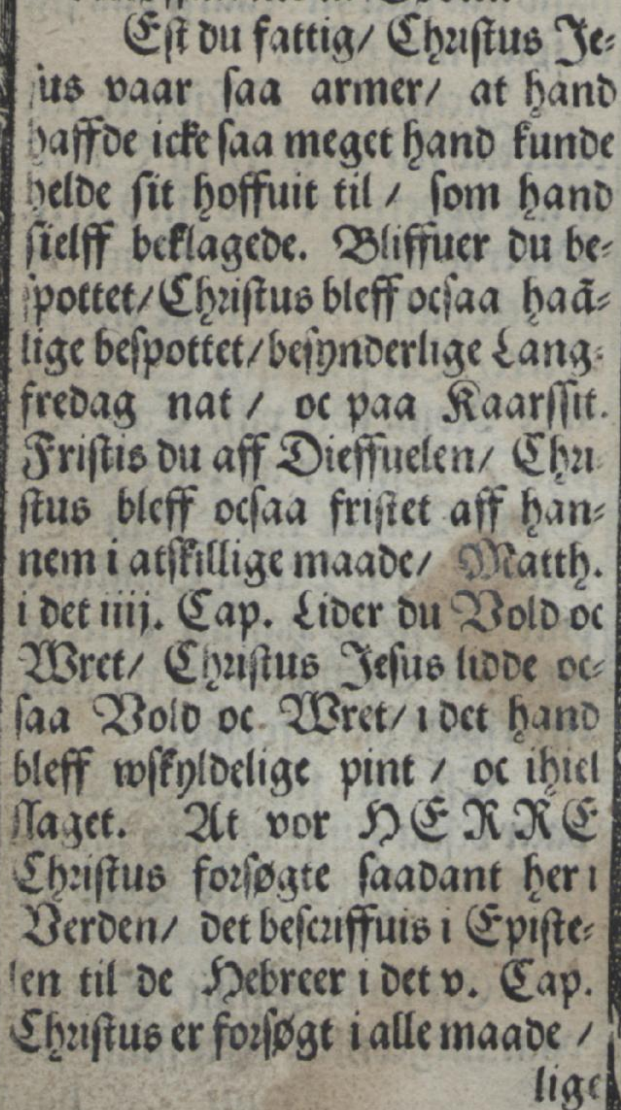 Est du fattig/ Christus Je⸗
sus vaar saa armer/ at hand
haffde icke saa meget hand kunde
helde sit hoffuit til / som hand
sielff beklagede. Bliffuer du be⸗
spottet/ Christus bleff ocsaa haã⸗
lige bespottet/ besynderlige Lang⸗
fredag nat / oc paa Kaarssit.
Fristis du aff Dieffuelen/ Chri⸗
stus bleff ocsaa fristet aff han⸗
nem i atskillige maade/ Matth.
i det iiij. Cap. Lider du Vold oc
Wret/ Christus Jesus lidde oc⸗
saa Vold oc Wret/ i det hand
bleff wskyldelige pint / oc ihiel
slaget. At vor HERRE
Christus forsøgte saadant her i
Verden/ det bescriffuis i Episte⸗
len til de Hebreer i det v. Cap.
Christus er forsøgt i alle maade /
lige